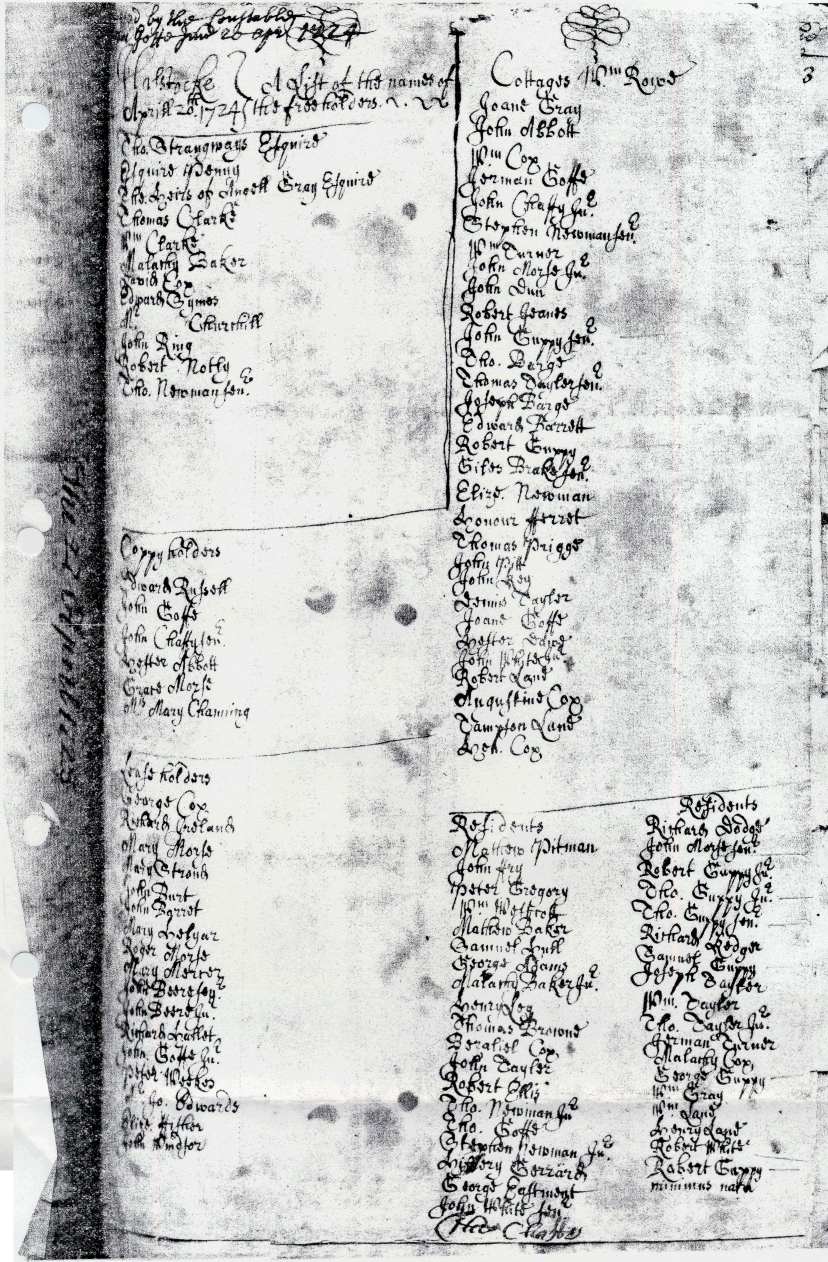 by the Constable
Goffe June 20 Apr 1724
Halstocke } A List of the names of
Aprill 20 1724 { the freeholders
Tho. Strangways Esquire
Esquire Penny
The Heirs of Angell Gray Esquire
Thomas Clarke
Wm Clarke
Malachy Baker
David Cox
Edward Symes
Mr. Churchill
John Ring
Robert Notly
Tho. Newman sen.r
Coppyholders
Edward Russell
John Goffe
John Chaffy sen.r
Hester Abbott
Grace Morse
Mrs Mary Channing
Leaseholders
George Cox
Richard Ireland
Mary Morse
Mary Stroud
John Burt
John Barret
Mary Helyar
Roger Morse
Mary Mercer
John Beere sen.r
John Beere Ju.r
Richard Hallet
John Goffe Ju.r
Peter Weekes
Jo. Edwards
Eliz. Hither
John Windsor
Cottages Wm Rowe
Joane Gray
John Abbott
Wm Cox
Jerman Goffe
John Chaffy Ju.r
Stephen Newman sen.r
Wm Turner
John Morse Ju.r
John Dun
Robert Jeanes
John Guppy sen.r
Tho. Barge
Thomas Tayler sen.r
Joseph Barge
Edward Barrett
Robert Guppy
Giles Brake sen.r
Eliz. Newman
Honour Ferret
Thomas Prigge
John Pitt
John Hey
Dennis Tayler
Joane Goffe
Hester
John White Ju.r
Robert Lane
Augustine Cox
Tampson Lane
Hen. Cox
Residents
Mathew Pitman
John Fry
Peter Gregory
Wm Westcott
Mathew Baker
Samuel Hull
George Adams
Malachy Baker Ju.r
Henry Leg
Thomas Browne
Bezaliel Cox
John Tayler
Robert Ellis
Tho. Newman Ju.r
Tho. Goffe
Stephen Newman Ju.r
Hillery Gerrard
George Eastment
John White sen.r
Residents
Richard Dodge
John Morse sen.r
Robert Guppy Ju.r
Tho. Guppy Ju.r
Tho. Guppy sen.r
Richard Hedger
Samuel Guppy
Joseph Tayler
Wm. Tayler
Tho. Tayler Ju.r
Jerman Turner
Malachy Cox
George Guppy
Wm Gray
Wm Lane
Henry Lane
Robert White
Robert Guppy
minimus natu
3